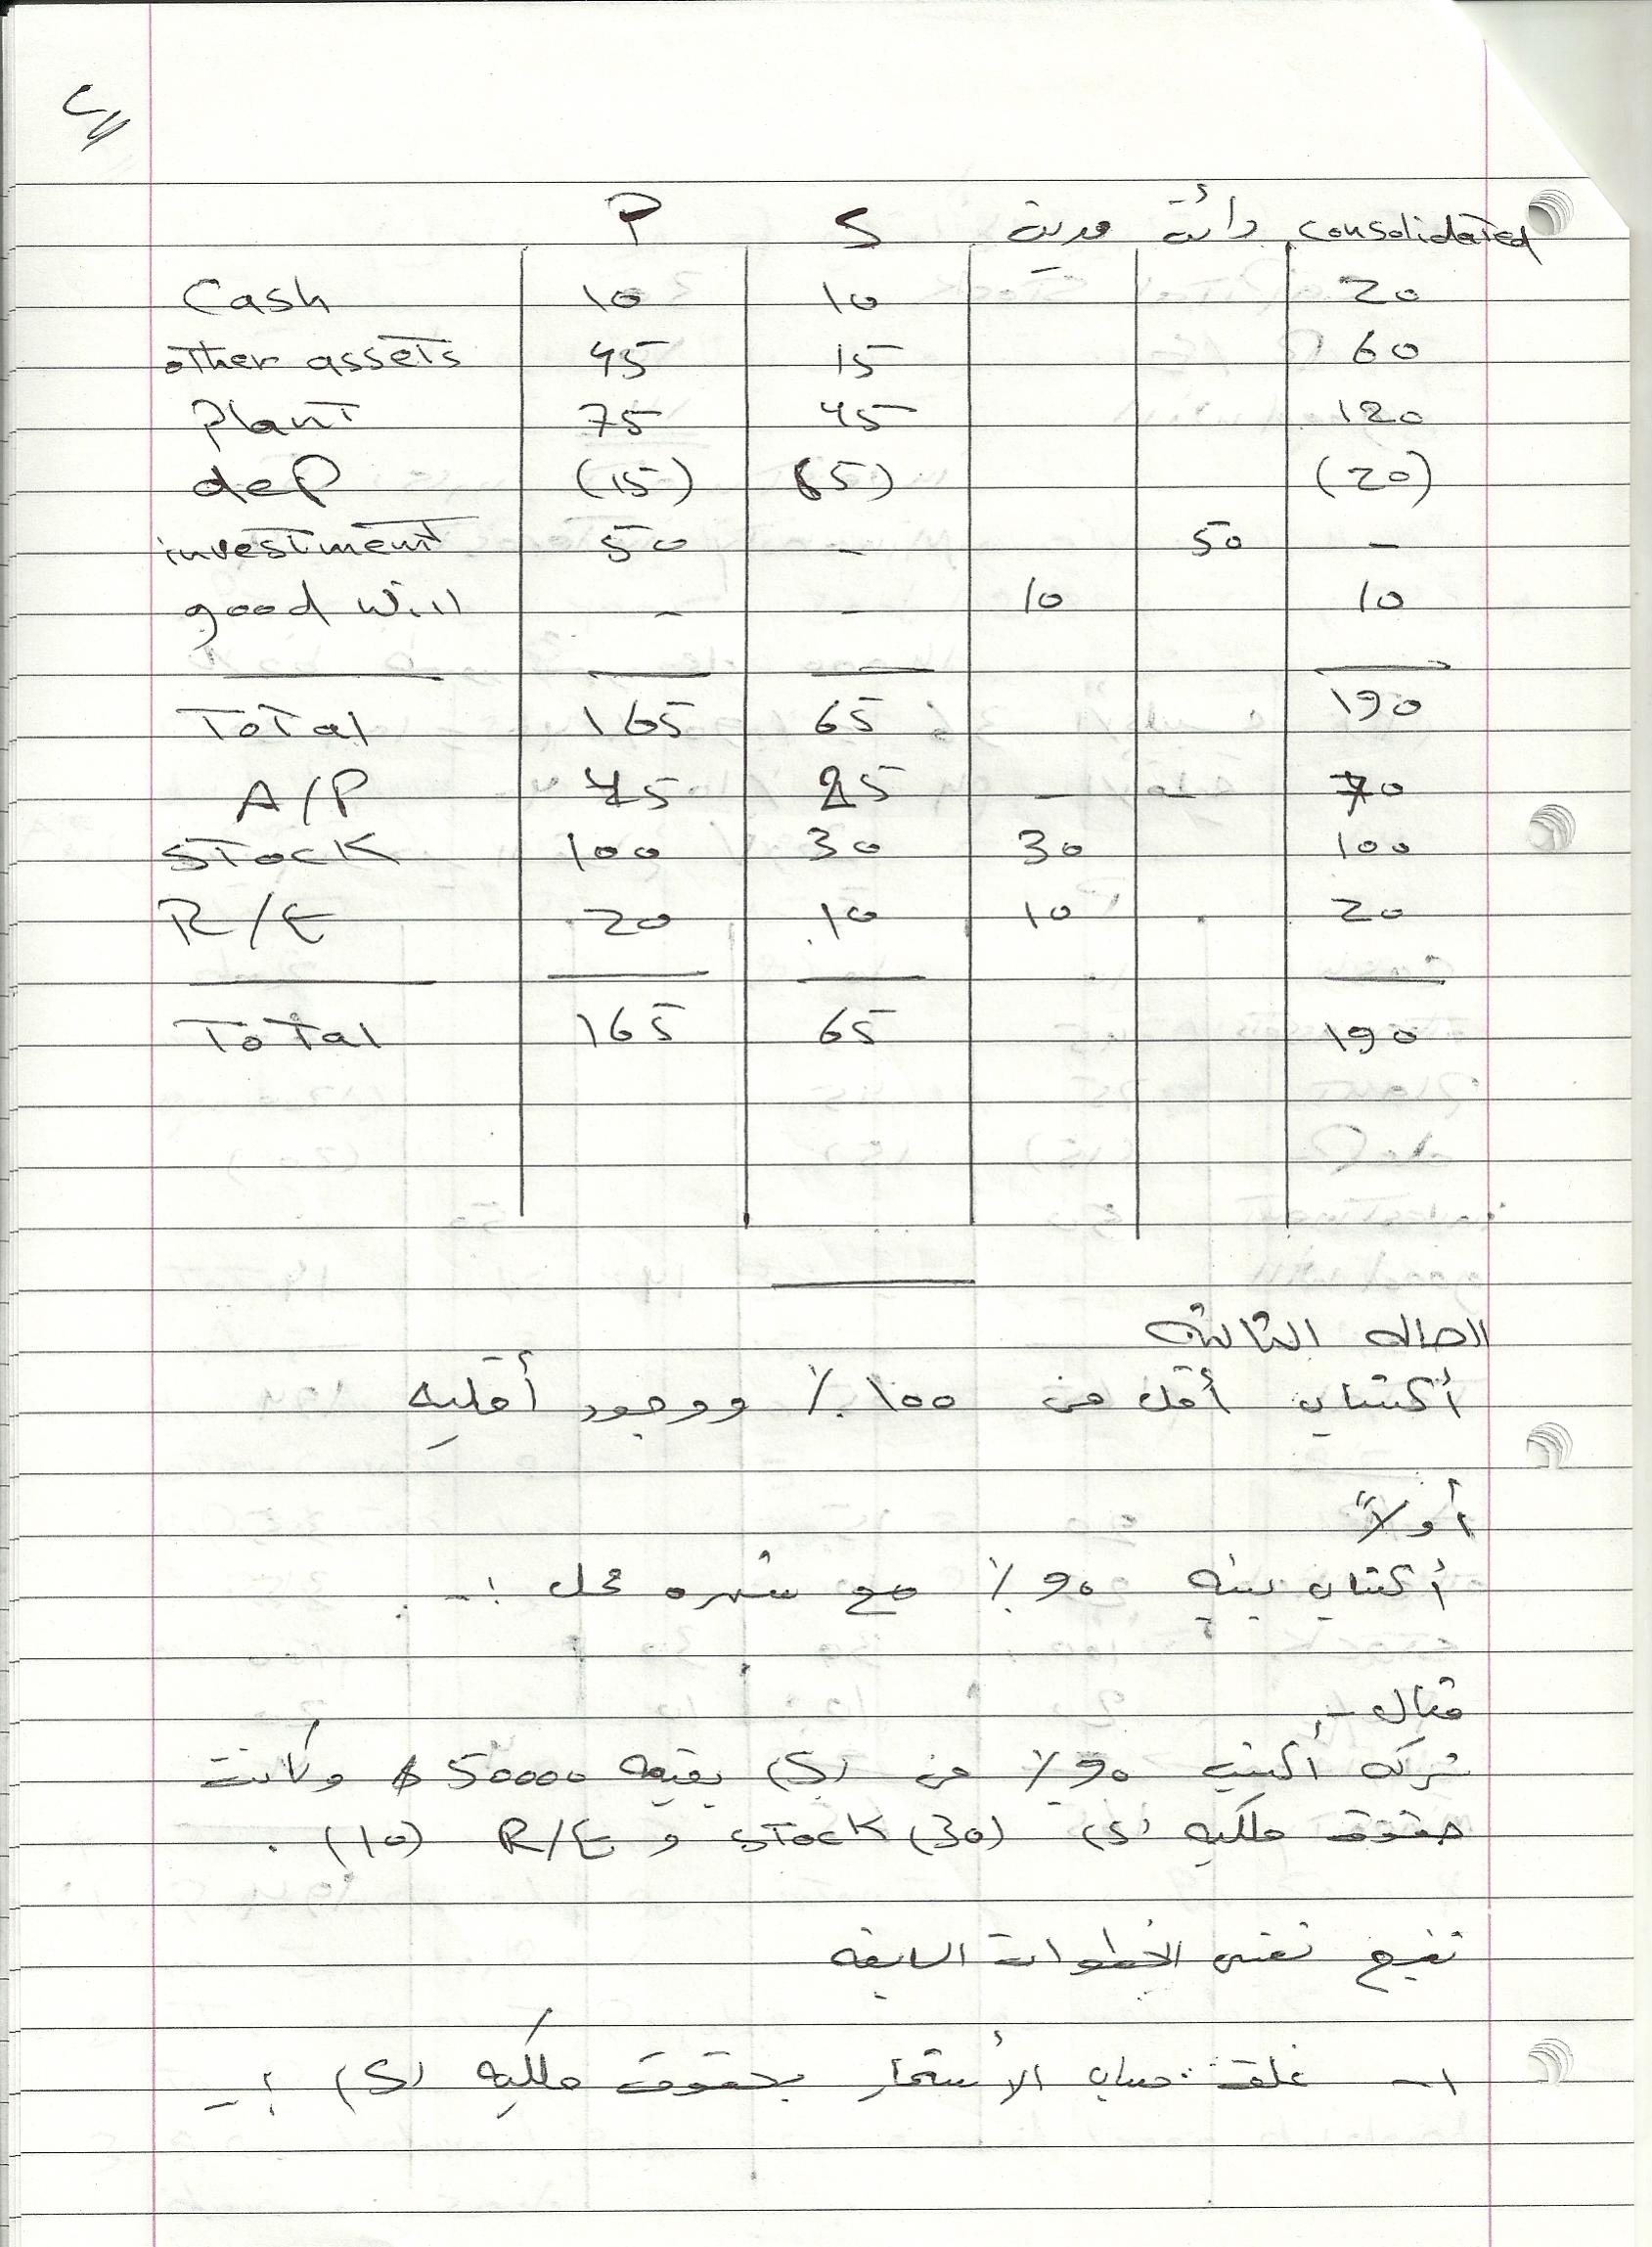 P S مدينة دائنة consolidated
Cash 10 10 20
other assets 45 15 60
Plant 75 45 120
deP (15) (5) (20)
investment 50 - 50 -
good will - - 10 10
Total 165 65 190
A/P 45 25 - - 70
Stock 100 30 30 100
R/E 20 10 10 20
Total 165 65 190
الحاله الثالثه
أكتتاب أقل من 100٪ ووجود أقليه
أولاً
أكتتاب بنسبه 90٪ مع شهره محل :-
مثال :-
شركه أكتتبت 90٪ من (S) بقيمه 50000 $ وكانت
حقوق ملكيه (S) Stock (30) و R/E (10) .
نتبع نفس الخطوات السابقه
1- غلق حساب الأستثمار بحقوق ملكيه (S) :-